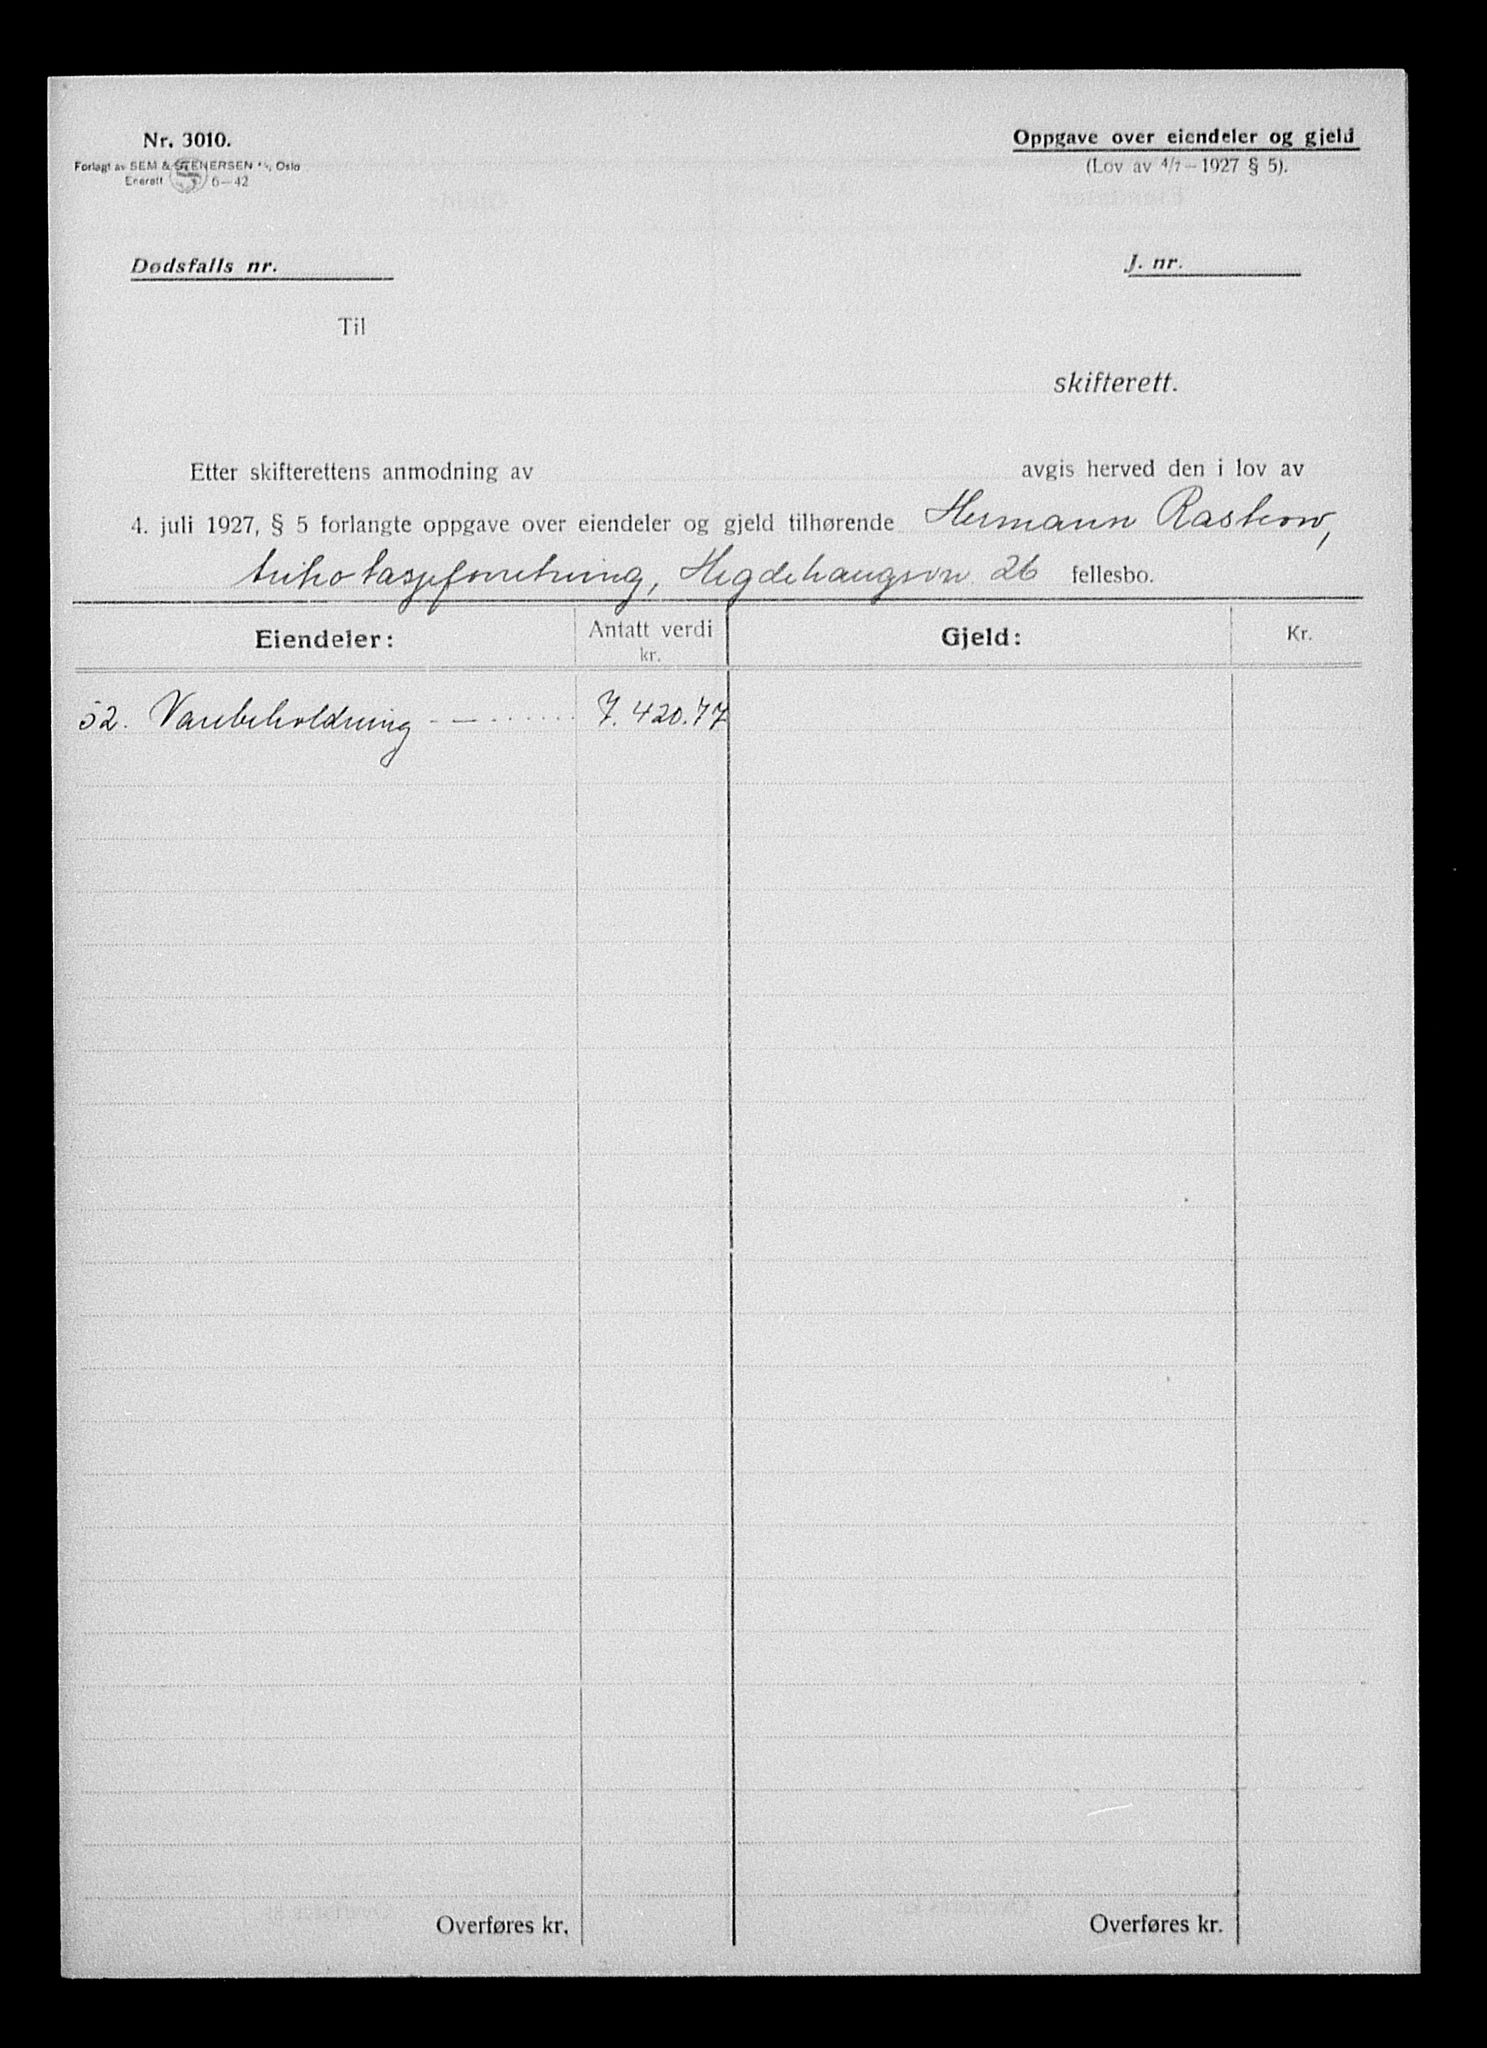 Nr. 3010.
Forlagt av SEM & STENERSEN A/S, Oslo
Enerett 6–42
Oppgave over eiendeler og gjeld
(Lov av 4/7 – 1927 § 5).
Dødsfalls nr.
J. nr.
Til
skifterett.
Etter skifterettens anmodning av avgis herved den i lov av
4. juli 1927, § 5 forlangte oppgave over eiendeler og gjeld tilhørende Hermann Raskow,
trikotasjeforretning, Hegdehaugsvn. 26 fellesbo.
Eiendeler: Antatt verdi kr. Gjeld: Kr.
52. Varebeholdning - — - - - - - - 7.420.77
Overføres kr. Overføres kr.